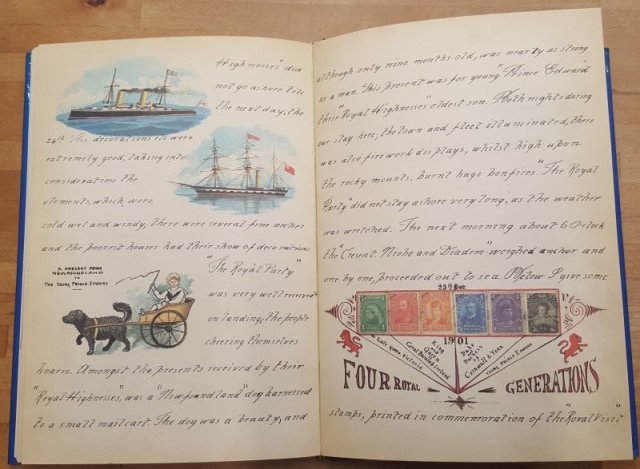 Highnesses" did
not go ashore till
the next day, the
24th. The decorations etc were
extremely good, taking into
consideration the
elements, which, were
cold wet and windy, there were several fine arches
and the poorest houses had their show of decorations.
"The Royal Party"
was very well received
on landing, the people
cheering themselves
hoarse. Amongst the presents received by their
"Royal Highnesses", was a "Newfoundland" dog harnessed
to a small mailcart. The dog was a beauty, and
A PRESENT FROM
NEWFOUNDLAND
TO
THE YOUNG PRINCE EDWARD
although only nine months old, was nearly as strong
as a man. This present was for young "Prince Edward"
their "Royal Highnesses" eldest son. Both nights during
our stay here, the town and fleet illuminated, there
was also firework displays, whilst high upon
the rocky mounts, burnt huge bonfires. "The Royal
Party" did not stay ashore very long, as the weather
was wretched. The next morning about 6 O'clock
the "Cresent, Niobe and Diadem" weighed anchor and
one by one, proceeded out to sea. Below I give some
25th Oct
1901
Late Queen Victoria
King
Queen
Duke
Cornwall & York
Young Prince Edward
FOUR ROYAL GENERATIONS
stamps, printed in commemoration of the "Royal Visit"